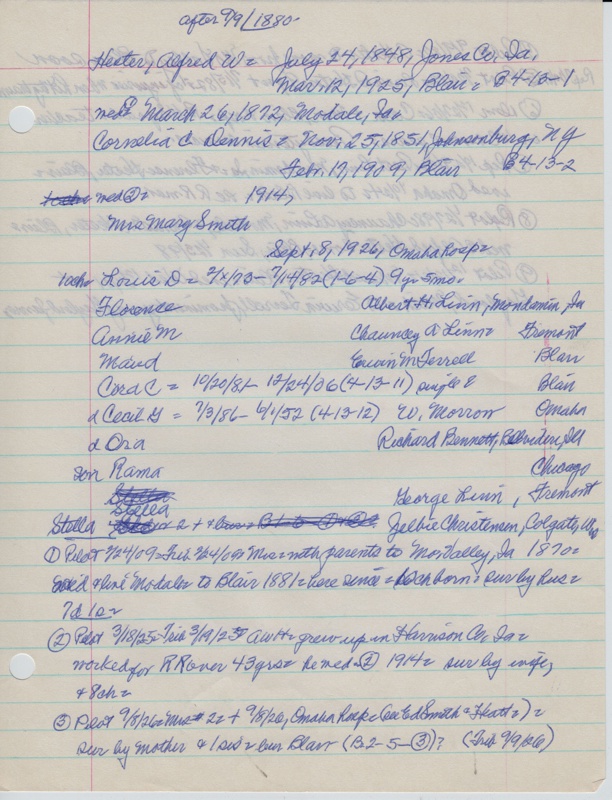 after 9/9/1880-
Hester, Alfred W = July 24, 1848, Jones Co, Ia,
Mar, 12, 1925, Blair = B4-13-1
med① March 26, 1872, Modale, Ia,
Cornelia C Dennis = Nov, 25, 1851, Johnsonburg, NY
Febr. 17, 1909, Blair B4-13-2
med② = 1914,
Mrs Mary Smith
Sept, 8, 1926, Omaha Hosp =
10ch = Louis D = 2/x/73 - 7/14/82 (1-6-4) 9yr 5mo =
Florence Albert H. Linn, Mondamin, Ia
Annie M Chauncey A. Linn = Fremont
Maud Erwin M Ferrell Blair
Cora C = 10/20/81 - 12/24/06 (4-13-11) single Blair
d Cecil G = 7/3/86 - 6/1/52 (4-13-12) W. Morrow Omaha
d Ora Richard Bennett, Belvidere, Ill
son Rama Chicago
Stella George Linn, Fremont
Stella Jelbie Christensen, Colgate,
① Pilot 2/24/09 = Trib 2/24/09 = Mrs = with parents to Mo Valley, Ia 1870 =
med & live Modale = to Blair 1881 = here since = 10ch born = sur by hus =
7d 1s =
② Pilot 3/18/25 = Trib 3/19/25 = AWH = grew up in Harrison Co, Ia =
worked for RR over 43yrs = he med ② 1914 = sur by wife,
+ 8ch =
③ Pilot 9/8/26 = Mrs 2 = + 9/8/26, Omaha Hosp = (see Ed Smith = Hiatt =) =
sur by mother & 1 sis = bur Blair (B2-5-③)? (Trib 9/9/06)